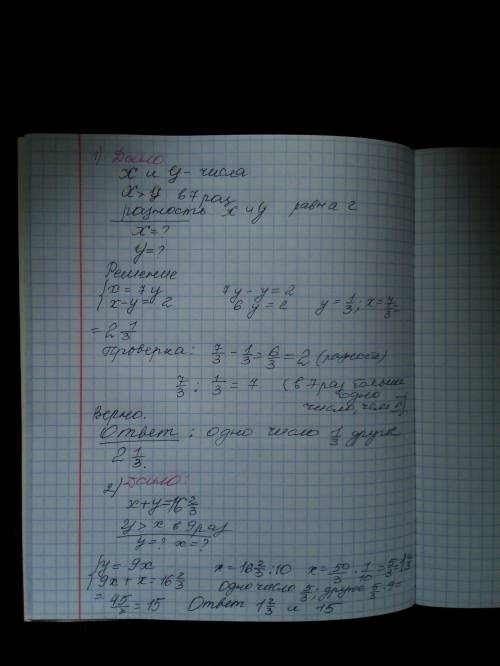 1) Дано
x и y - числа
x > y в 7 раз
разность x и y равна 2
x = ?
y = ?
Решение
{ x = 7y 7y - y = 2
{ x - y = 2 6y = 2 y = 1/3; x = 7/3 =
= 2 1/3
Проверка: 7/3 - 1/3 = 6/3 = 2 (разность)
7/3 : 1/3 = 7 (в 7 раз больше
одно
число, чем
Верно.
Ответ: одно число 1/3 другое
2 1/3.
2) Дано:
x + y = 16 2/3
y > x в 9 раз
y = ? x = ?
{ y = 9x x = 16 2/3 : 10 x = 50/3 · 1/10 = 5/3 = 1 2/3
{ 9x + x = 16 2/3 Одно число 5/3; другое 5/3 · 9 =
= 45/3 = 15 Ответ 1 2/3 и 15